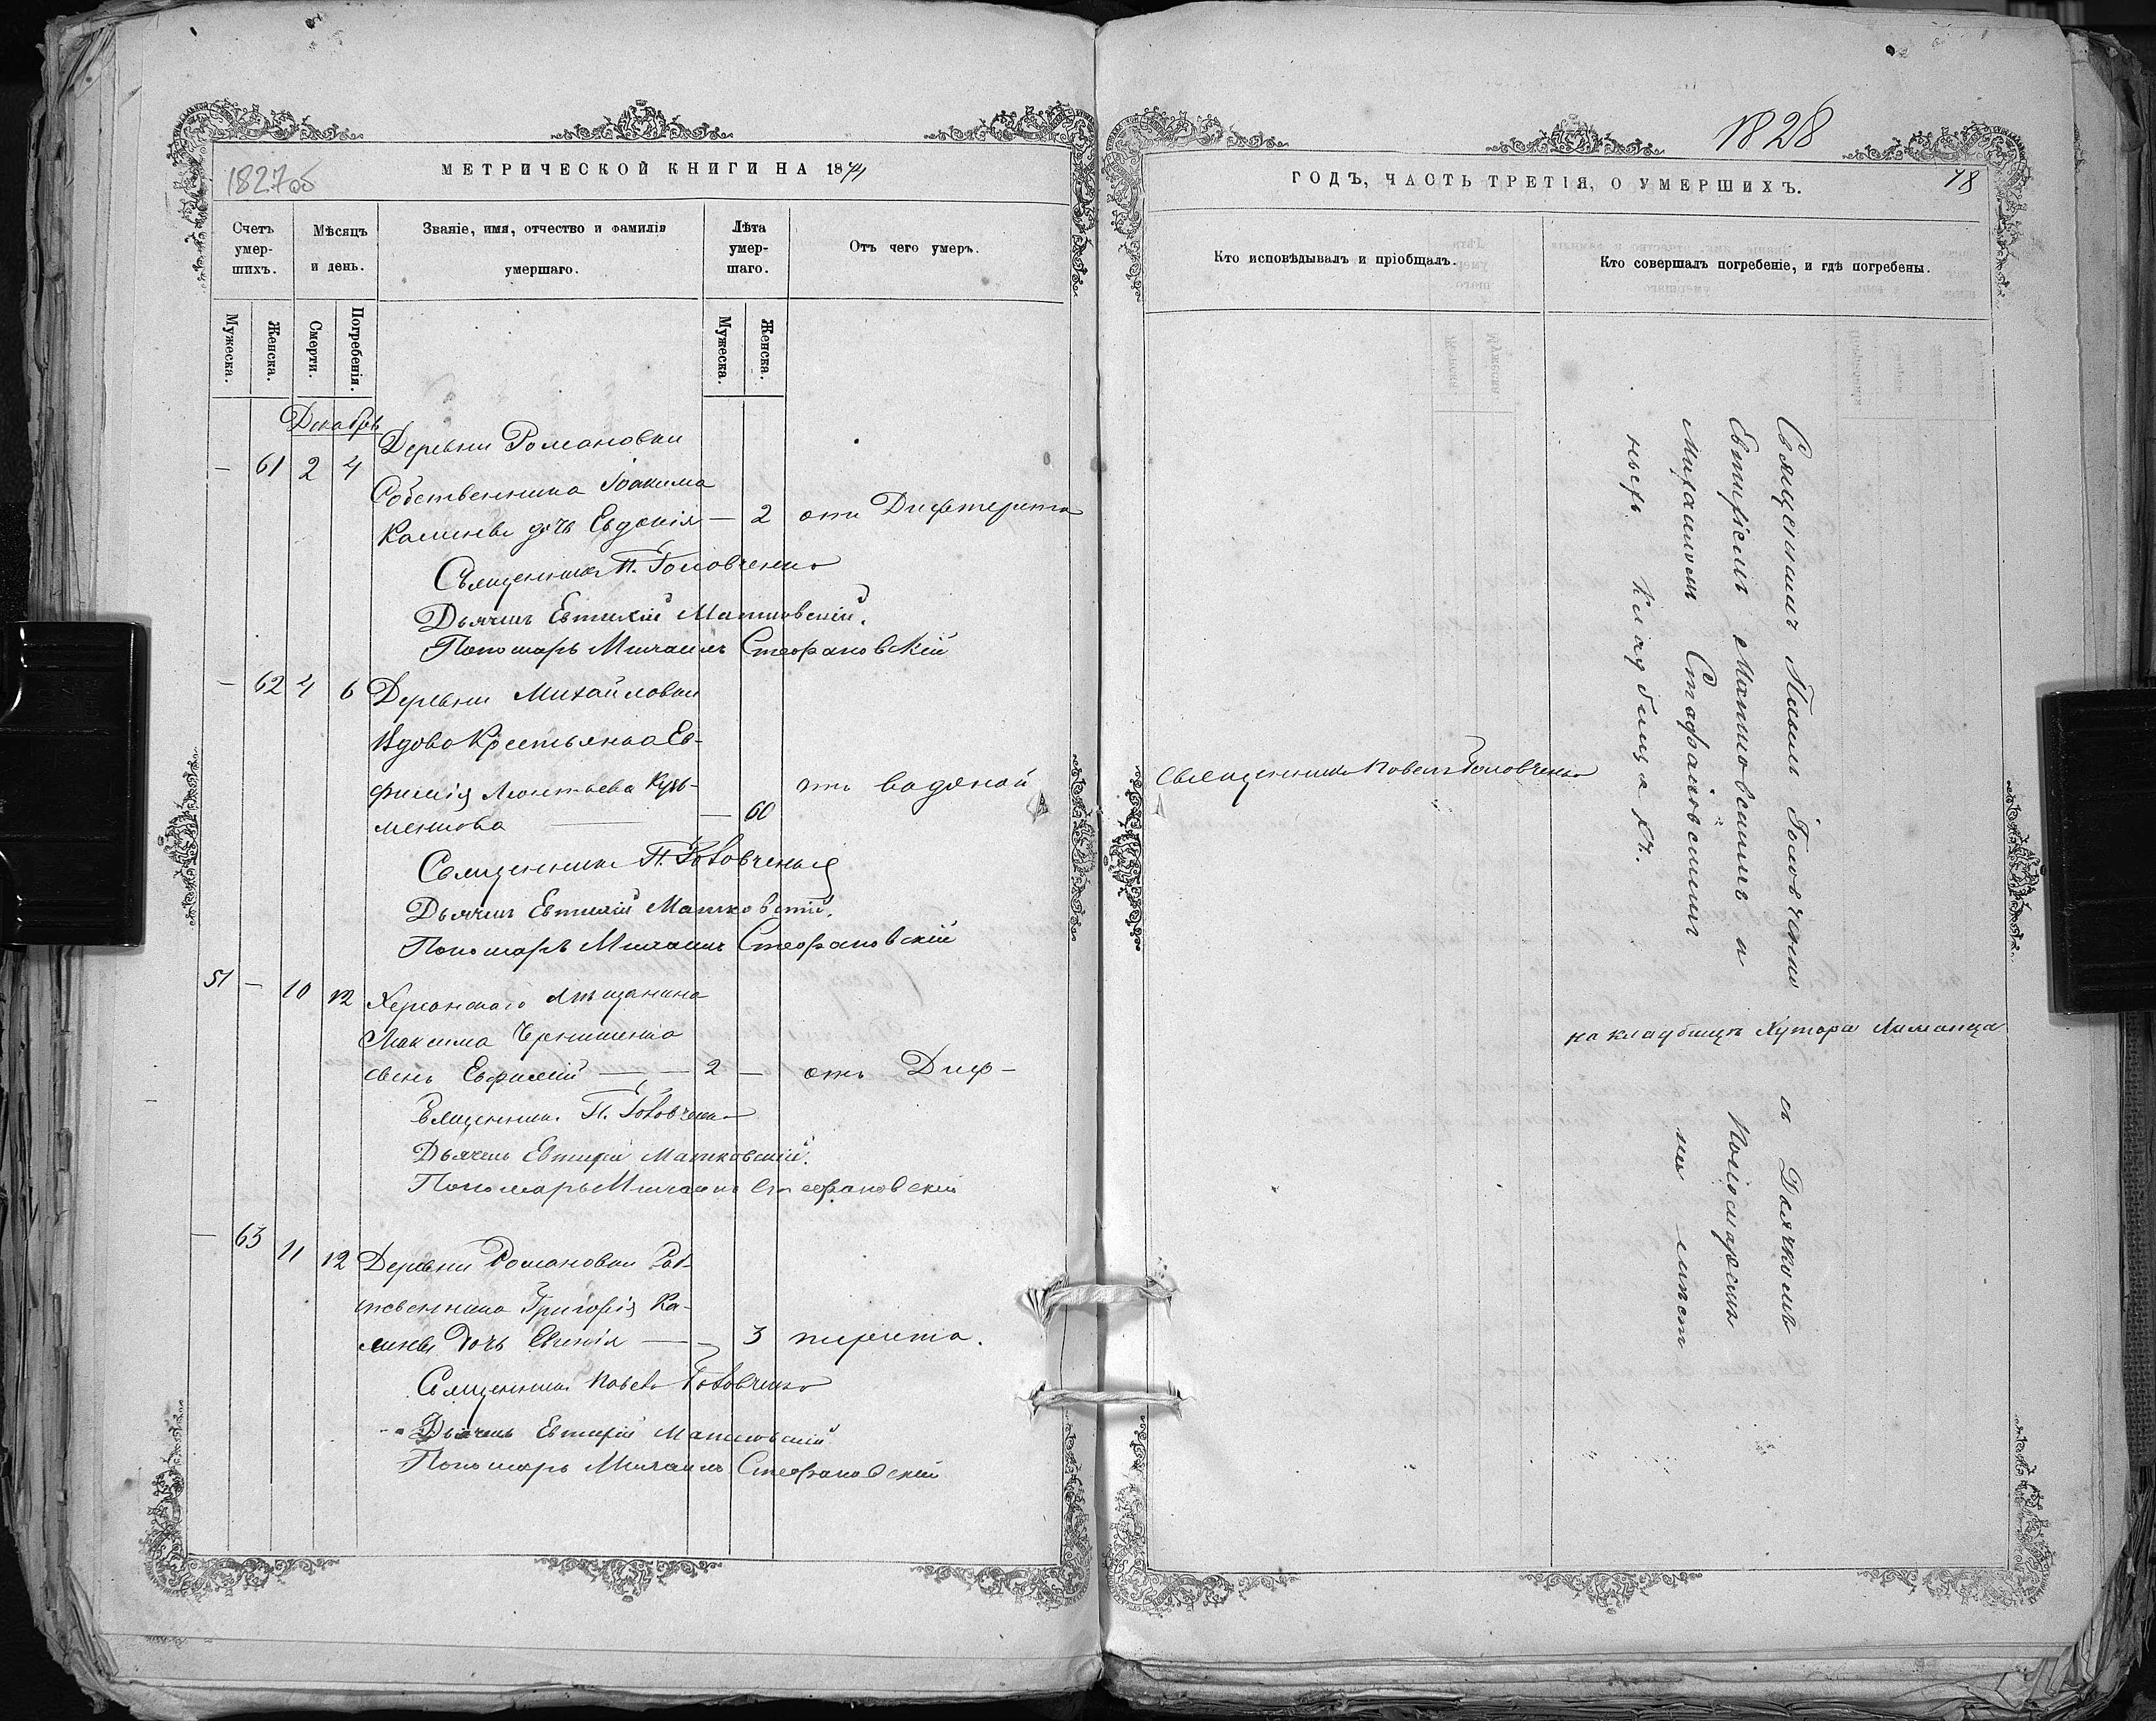 1827об
МЕТРИЧЕСКОЙ КНИГИ НА 1874
Счетъ умер-шихъ.
Мѣсяцъ и день.
Званіе, имя, отчество и фамилія умершаго.
Лѣта умер-шаго.
Отъ чего умеръ.
Мужеска.
Женска.
Смерти.
Погребенія.
Мужеска.
Женска.
Декабрь
Деревни Романовки
— 61 2 4
Собственника Іоакима
Калинев дочь Евдокія — 2 отъ Дифтерита
Священникъ П. Головченко
Дьячекъ Евтихій Матковскій.
Пономарь Михаилъ Стефановскій
— 62 4 6 Деревни Михайловки
Вдова Крестьянка Ев-
фимія Леонтьева Кузь-
отъ водяной
менкова — 60
Священникъ П. Головченко
Дьячекъ Евтихій Матковскій.
Пономарь Михаилъ Стефановскій
51 — 10 12 Херсонскаго мѣщанина
Максима
сынъ Евфимій — 2 — отъ Диф-
Священникъ П. Головченко
Дьячекъ Евтихій Матковскій.
Пономарь Михаилъ Стефановскій
— 63 11 12 Деревни Романовки Соб-
ственника Григорія Ка-
линев дочь — 3 терита.
Священникъ Павелъ Головченко
Дьячекъ Евтихій Матковскій
Пономарь Михаилъ Стефановскій
1828
78
ГОДЪ, ЧАСТЬ ТРЕТІЯ, О УМЕРШИХЪ.
Кто исповѣдывалъ и пріобщалъ.
Кто совершалъ погребеніе, и гдѣ погребены.
Священникъ Павелъ Головченко
Священникъ Павелъ Головченко съ Дьячкомъ
Евтихіемъ Матковскимъ и Пономаремъ
Михаиломъ Стефановскимъ на
кладбищахъ.
на кладбищѣ Хутора Лиманца